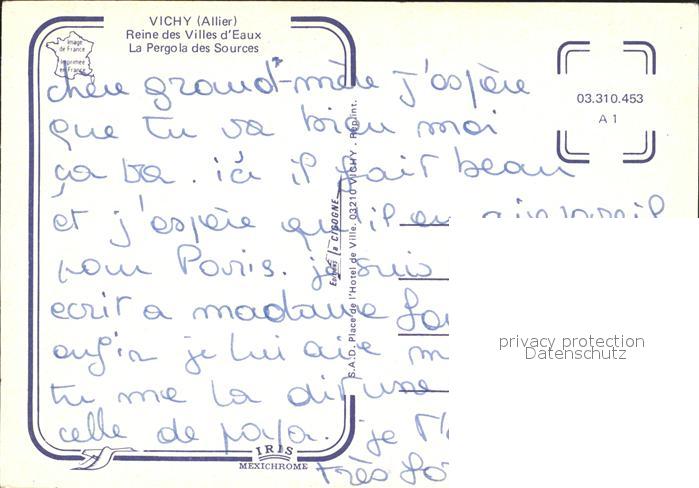 VICHY (Allier)
Reine des Villes d'Eaux
La Pergola des Sources
Image
de France
Imprimée
en France
03.310.453
A 1
chère grand-mère j'espère
que tu va bien moi
ça va. ici il fait beau
et j'espère qu'il en
pour Paris. je suis
ecrit a madame
enfin je lui
tu me la
celle de papa. je t'
Très
Editions la CIGOGNE
S.A.D. Place de l'Hotel de Ville. 03210 VICHY. Rep. Int.
privacy protection
Datenschutz
IRIS
MEXICHROME